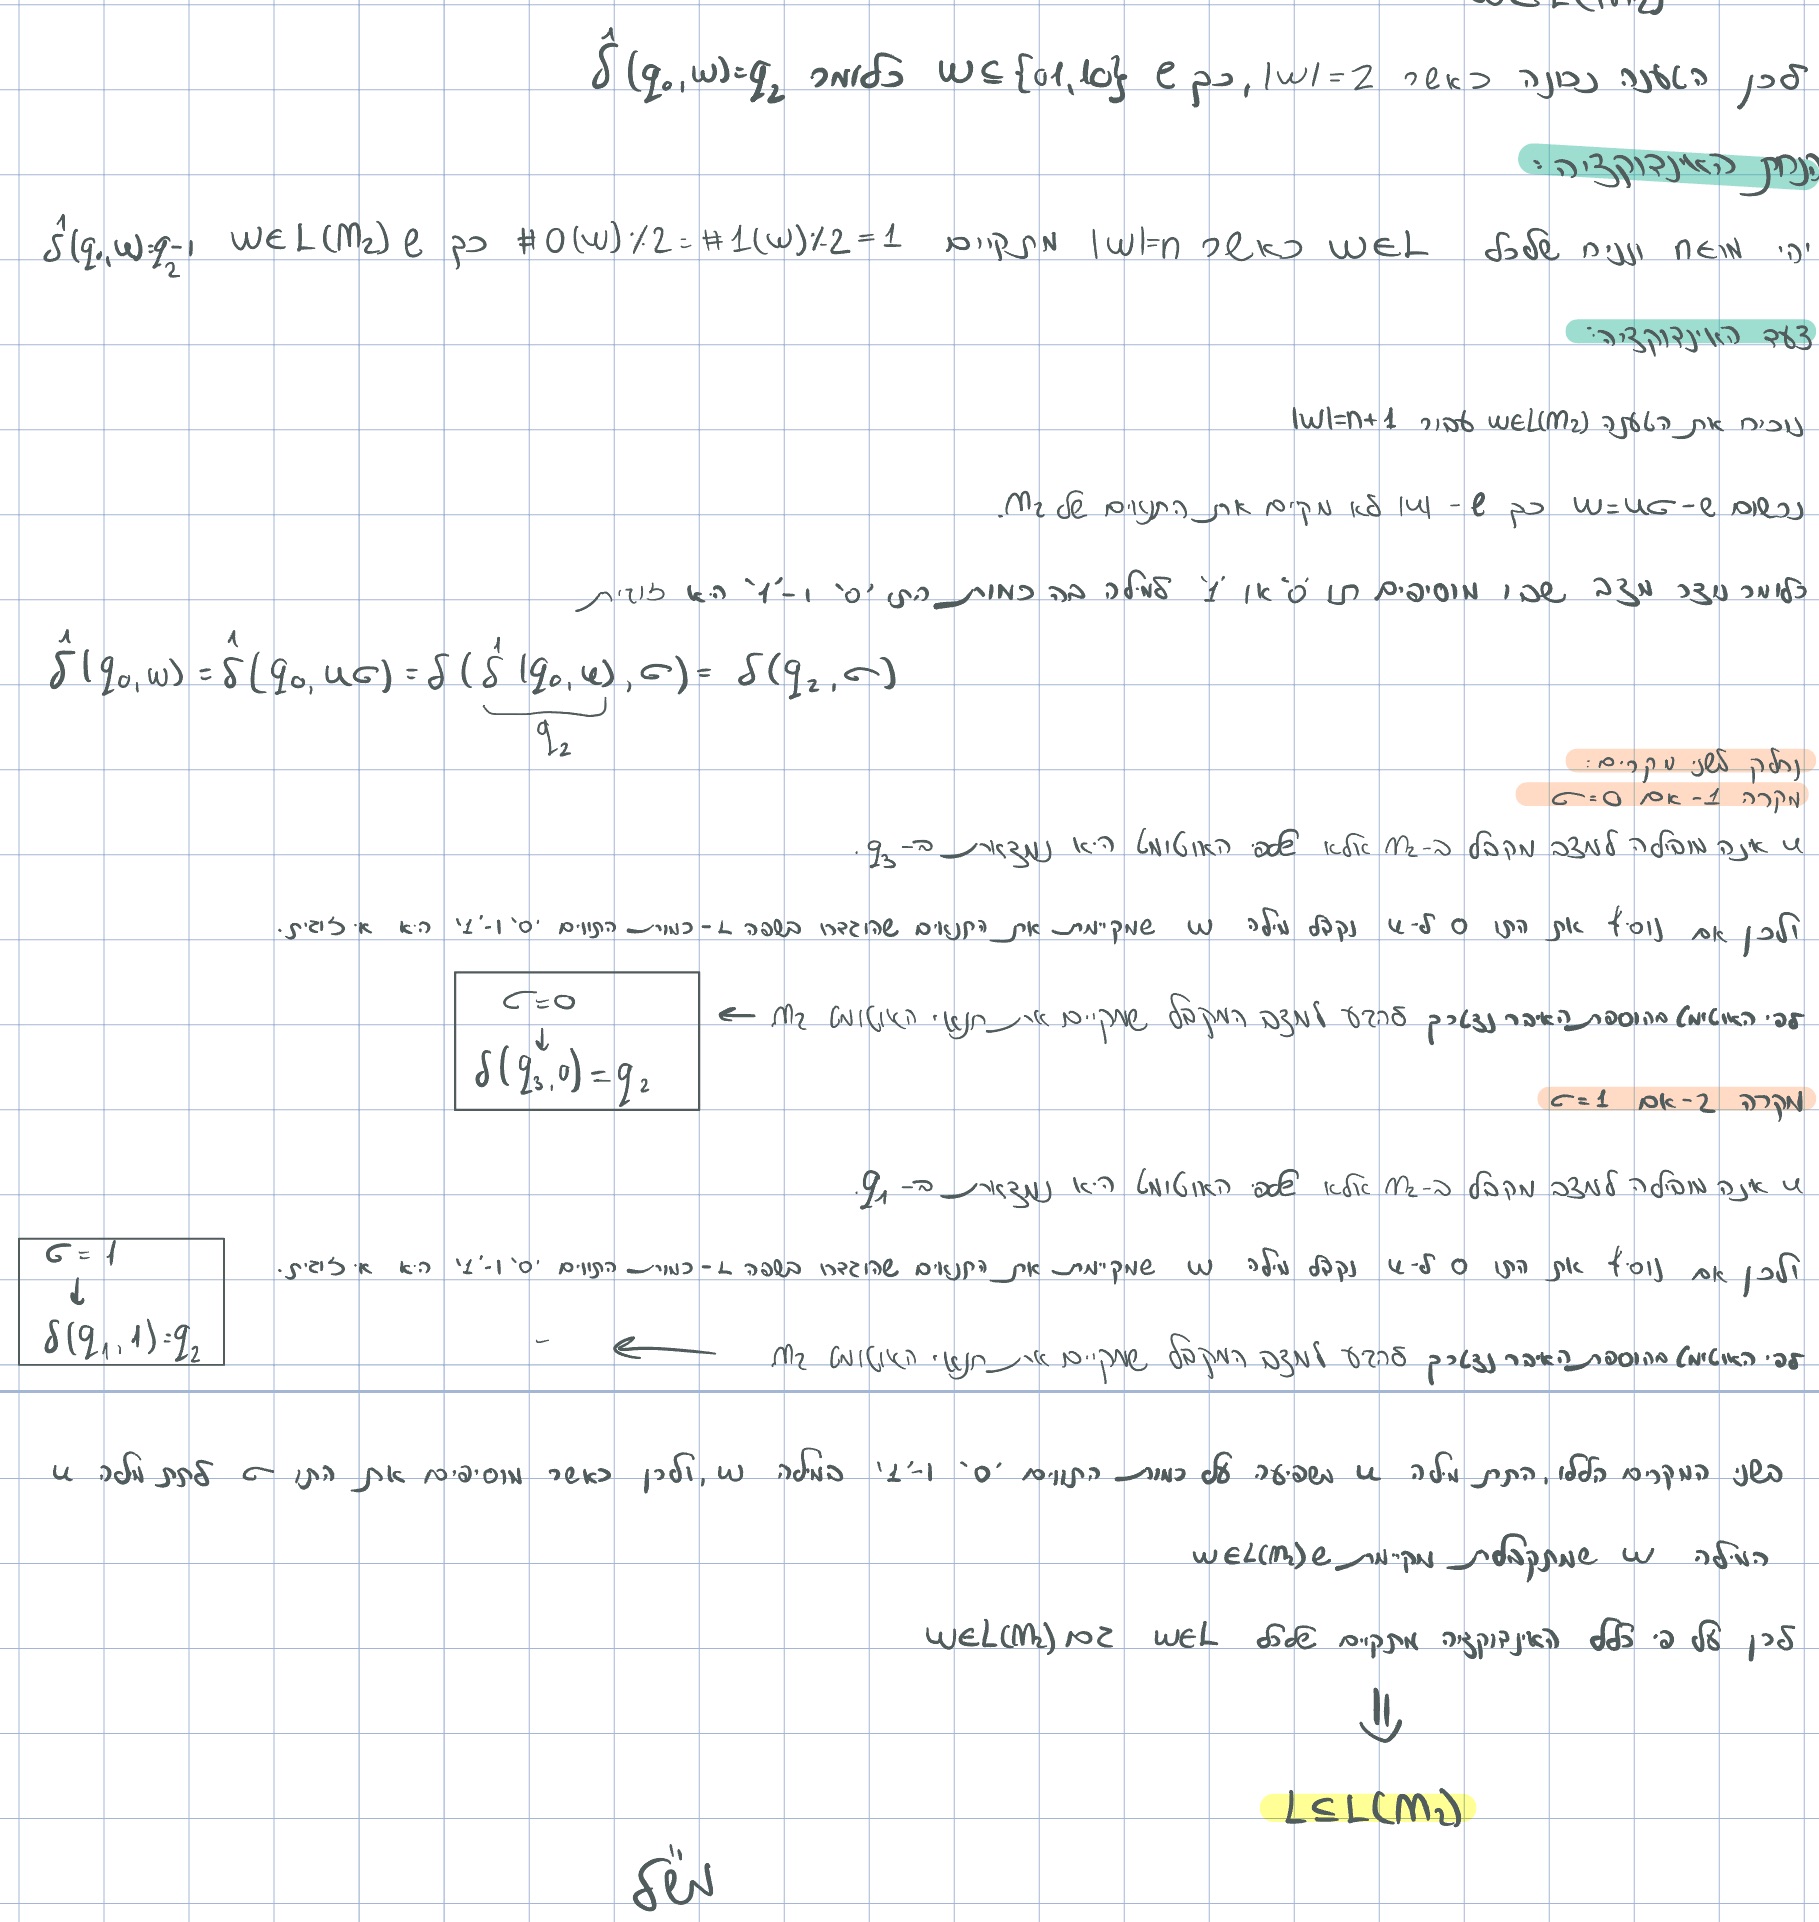 לכן הטענה נכונה כאשר |w|=2, כך ש w⊆{01,10} כלומר δ̂(q₀,w)=q₂
הנחת האינדוקציה:
יהי ונניח שלכל w∈L כאשר |w|=n מתקיים #0(w)%2=#1(w)%2=1 כך ש w∈L(M₂) ו-δ̂(q₀,w)=q₂
צעד האינדוקציה:
נוכיח את הטענה w∈L(M₂) עבור |w|=n+1
נרשום ש-w=uσ כך ש-|u| לא מקיים את התנאים של M₂.
כלומר נוצר מצב שבו מוסיפים תו '0' או '1' למילה בה כמות התו '0' ו-'1' היא זוגית
δ̂(q₀,w)=δ̂(q₀,uσ)=δ(δ̂(q₀,u),σ)=δ(q₂,σ)
q₂
נחלק לשני מקרים:
מקרה 1- אם σ=0
u אינה מובילה למצב מקבל ב-M₂ אלא שלפי האוטומט היא נמצאת ב-q₃.
ולכן אם נוסיף את התו 0 ל-u נקבל מילה w שמקיימת את התנאים שהוגדרו בשפה L-כמות התווים '0' ו-'1' היא אי זוגית.
לפי האוטומט בהוספת האיבר נצטרך להגיע למצב המקבל שמקיים את תנאי האוטומט M₂ ←
σ=0
↓
δ(q₃,0)=q₂
מקרה 2- אם σ=1
u אינה מובילה למצב מקבל ב-M₂ אלא שלפי האוטומט היא נמצאת ב-q₁.
ולכן אם נוסיף את התו 0 ל-u נקבל מילה w שמקיימת את התנאים שהוגדרו בשפה L-כמות התווים '0' ו-'1' היא אי זוגית.
לפי האוטומט בהוספת האיבר נצטרך להגיע למצב המקבל שמקיים את תנאי האוטומט M₂ ←
σ=1
↓
δ(q₁,1)=q₂
בשני המקרים הללו, התת מילה u משפיעה על כמות התווים '0' ו-'1' במילה w, ולכן כאשר מוסיפים את התו σ לתת מילה u
המילה w שמתקבלת מקיימת ש w∈L(M₂)
לכן על פי כלל האינדוקציה מתקיים שלכל w∈L גם w∈L(M₂)
⇓
L⊆L(M₂)
מש"ל